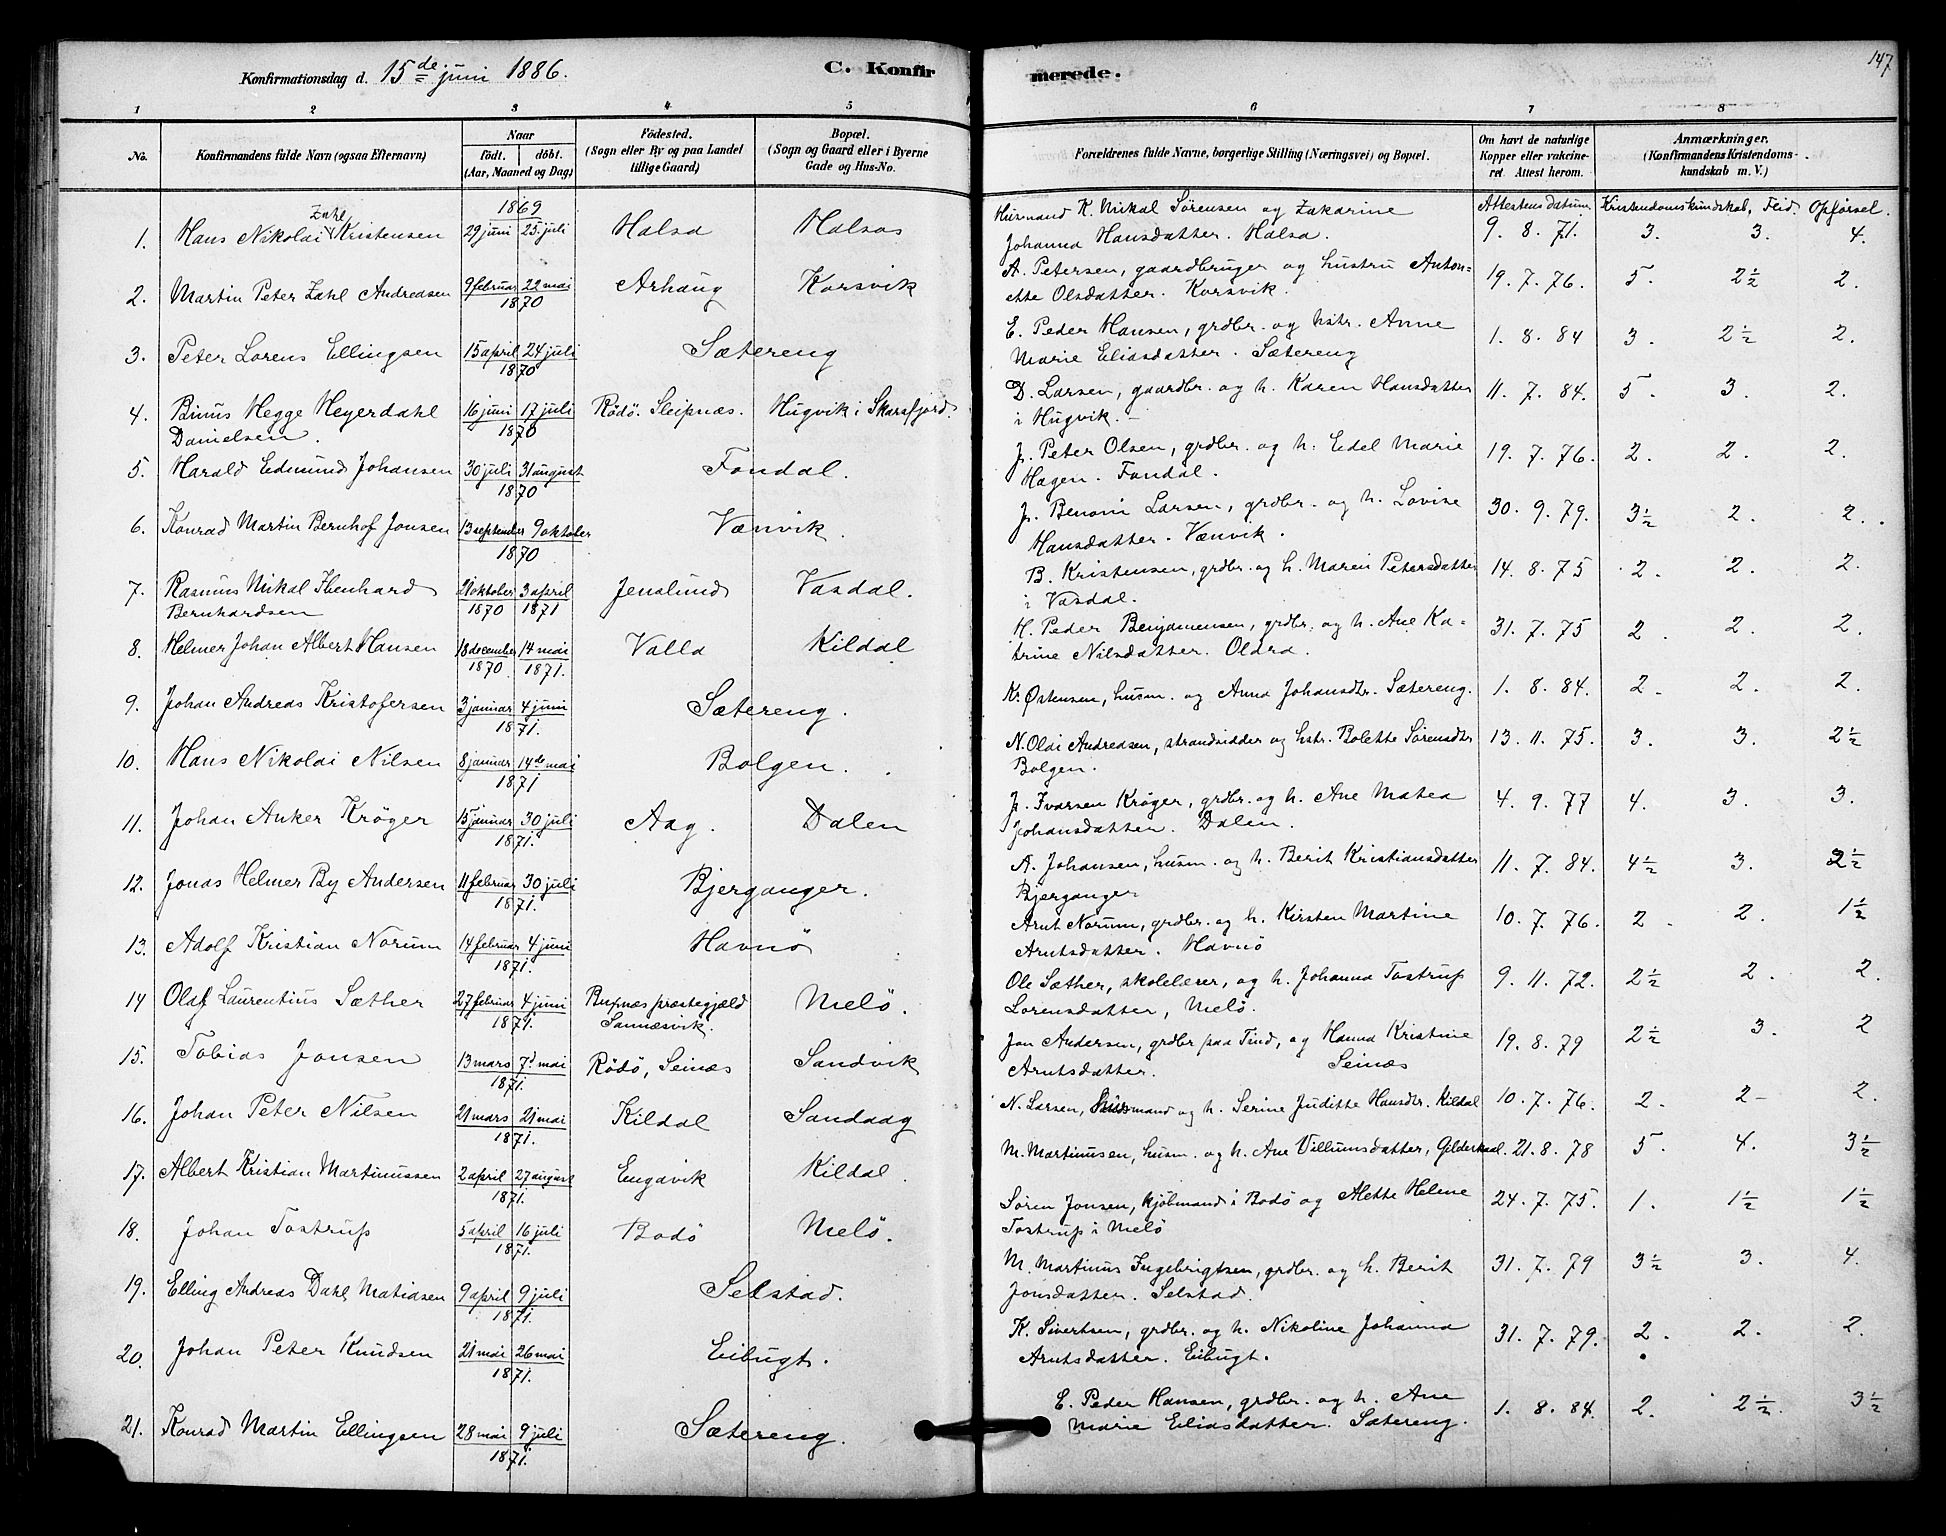 147
Konfirmationsdag d. 15de juni 1886.
C. Konfirmerede.
1 2 3 4 5 6 7 8
No. Konfirmandens fulde Navn (ogsaa Efternavn) Naar födt. döbt. (Aar, Maaned og Dag) Födested. (Sogn eller By og paa Landet tillige Gaard) Bopæl. (Sogn og Gaard eller i Byerne Gade og Hus-No. Forældrenes fulde Navne, borgerlige Stilling (Næringsvei) og Bopæl. Om havt de naturlige Kopper eller vakcineret. Attest herom. Anmærkninger. (Konfirmandens Kristendomskundskab m. V.)
Attestens datum. Kristendomskundskab, Flid. Opførsel.
1. Hans Nikolai Zahl Kristensen 1869 29 juni 25 juli Halsa Halsos Husmand K. Mikal Sörensen og Zakarine
Johanna Hansdatter. Halsa. 9. 8. 71. 3. 3. 4.
2. Martin Peter Zahl Andreasen 9 februar 22 mai 1870 Arhaug Korsvik A. Petersen, gaardbruger og hustru Anton-
ette Olsdatter. Korsvik. 19. 7. 76. 5. 2½ 2.
3. Peter Lorens Ellingsen 15 april 24 juli 1870 Sætereng E. Peder Hansen, grdbr. og hstr. Anne
Marie Eliasdatter. Sætereng 1. 8. 84 3. 2½ 2.
4. Binus Hegge Heyerdahl
Danielsen. 16 juni 17 juli 1870 Rödö. Sleipnæs. Hugvik i Skarsfjord. D. Larsen, gaardbr. og h. Karen Hansdatter
i Hugvik. 11. 7. 84. 5. 3. 2.
5. Harald Edmund Johansen 30 juli 31 august 1870 Fondal. J. Peter Olsen, grdbr. og h. Edel Marie
Hagen. Fondal. 19. 7. 76. 2. 2. 2.
6. Konrad Martin Bernhof Jonsen 13 september 9 oktober 1870 Vænvik. J. Benoni Larsen, grdbr. og h. Lovise
Hansdatter. Vænvik. 30. 9. 79. 3½ 2. 2.
7. Rasmus Mikal Ibenhard
Bernhardsen 21 oktober 1870 3 april 1871 Jenslund Vasdal. B. Kristensen, grdbr. og h. Maren Petersdatter
i Vasdal. 14. 8. 75 2. 2. 2.
8. Helmer Johan Albert Hansen 18 december 1870. 14 mai 1871. Valla Kildal H. Peder Benjamensen, grdbr. og h. Ane Ka-
trine Nilsdatter. Oldra. 31. 7. 75 2. 2. 2.
9. Johan Andreas Kristofersen 3 januar 4 juni 1871. Sætereng. Kr. Östensen, husm. og Anna Johansdtr. Sætereng. 1. 8. 84. 2. 2. 2.
10. Hans Nikolai Nilsen 8 januar 14de mai 1871 Bolgen. N. Olai Andreasen, strandsidder og hstr. Bolette Sörensdtr
Bolgen. 13. 11. 75. 3. 3. 2½
11. Johan Anker Kröger 15 januar 30 juli 1871. Aag. Dalen J. Ivarsen Kröger, grdbr. og h. Ane Matea
Johansdatter. Dalen. 4. 9. 77 4. 3. 3.
12. Jonas Helmer By Andersen 11 februar 30 juli 1871. Bjerganger. A. Johansen, husm. og h. Berit Kristiansdatter
Bjerganger 11. 7. 84. 4½ 3. 2½
13. Adolf Kristian Norum 14 februar 4 juni 1871. Havnö Arnt Norum, grdbr. og h. Kirsten Martine
Arntsdatter. Havnö 10. 7. 76. 2. 2. 1½
14 Olaf Laurentius Sæther 27 februar 4 juni 1871. præstegjæld
Sannæsvik. Melö. Ole Sæther, skolelærer, og h. Johanna Tostrup
Lorensdatter, Melö. 9. 11. 72. 2½ 2. 2.
15. Tobias Jonsen 13 mars 7d mai 1871. Rödö, Seinæs Sandvik Jon Andersen, grdbr paa Tind, og Hanna Kristine
Arntsdatter. Seinæs 19. 8. 79 2½ 3. 2
16. Johan Peter Nilsen 21 mars 21 mai 1871. Kildal Sandaag N. Larsen, husmand og h. Serine Juditte Hansdtr. Kildal 10. 7. 76. 2. 2- 2.
17. Albert Kristian Martinussen 2 april 27 august 1871. Engavik Kildal M. Martinusen, husm. og h. Ane Villumsdatter, Gilderkaal. 21. 8. 78 5. 4. 3½
18. Johan Tostrup 5 april 16 juli 1871. Bodö Melö. Sören Jonsen, kjöbmand i Bodö og Alette Helene
Tostrup i Melö 24. 7. 75. 1. 1½ 1½
19. Elling Andreas Dahl Matiasen 9 april 9 juli 1871. Selstad. M. Martinus Ingebrigtsen, grdbr. og h. Berit
Jonsdatter. Selstad. 31. 7. 79 3½ 3. 4.
20. Johan Peter Knudsen 21 mai 26 mai 1871. Eibugt. K. Sivertsen, grdbr. og h. Nikoline Johanna
Arntsdatter. Eibugt. 31. 7. 79. 2. 2. 2.
21. Konrad Martin Ellingsen 28 mai 9 juli 1871. Sætereng. E. Peder Hansen, grdbr. og h. Ane
Marie Eliasdatter. Sætereng. 1. 8. 84. 2. 2½. 3½